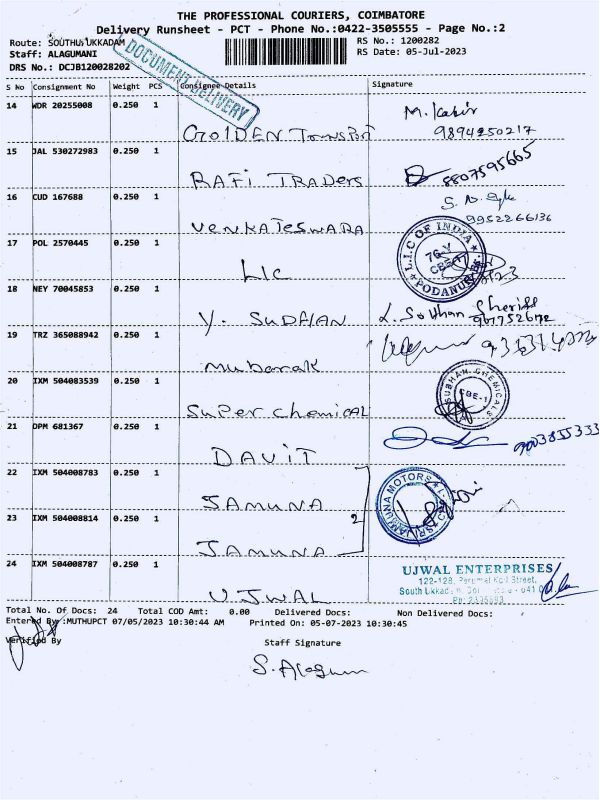 THE PROFESSIONAL COURIERS, COIMBATORE
Delivery Runsheet - PCT - Phone No.:0422-3505555 - Page No.:2
Route: SOUTHU UKKADAM
RS No.: 1200282
Staff: ALAGUMANI
RS Date: 05-Jul-2023
DRS No.: DCJB120028202
DOCUMENT DELIVERY
S No Consignment No Weight PCS Consignee Details Signature
14 WDR 20255008 0.250 1 M. Kabir
GOLDEN Transport 9894250217
15 JAL 530272983 0.250 1
RAFI TRADERS 8807595665
16 CUD 167688 0.250 1
VENKATESWARA 9952266136
17 POL 2570445 0.250 1 L.I.C OF INDIA
LIC PODANUR
18 NEY 70045853 0.250 1
Y. SUDHAN
19 TRZ 365088942 0.250 1
mubarak
20 IXM 504083539 0.250 1 SUBHAN CHEMICALS
CBE-1
Super chemical
21 DPM 681367 0.250 1
DAVIT 9003855333
22 IXM 504008783 0.250 1 JAMUNA MOTORS
JAMUNA
23 IXM 504008814 0.250 1 2
JAMUNA
24 IXM 504008787 0.250 1 UJWAL ENTERPRISES
122-128, Perumal Koil Street,
UJWAL South Ukkadam
Total No. Of Docs: 24 Total COD Amt: 0.00 Delivered Docs: Non Delivered Docs:
Entered By :MUTHUPCT 07/05/2023 10:30:44 AM Printed On: 05-07-2023 10:30:45
Verified By Staff Signature
S. Alagum